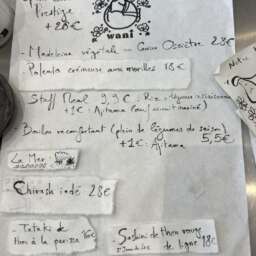 Prestige
+28€
wani
- Madeleine végétale - Caviar Osciètre 28€
- Polenta crémeuse aux morilles 18€
Staff Meal 9,9€ : Riz, légumes
+2€ : Ajitama (œuf mariné)
- Bouillon réconfortant (plein de légumes de saison)
5,5€
+2€ : Ajitama
La Mer
- Chirashi iodé 28€
- Tataki de
thon à la 16€
- Sashimi de thon rouge
de ligne 18€